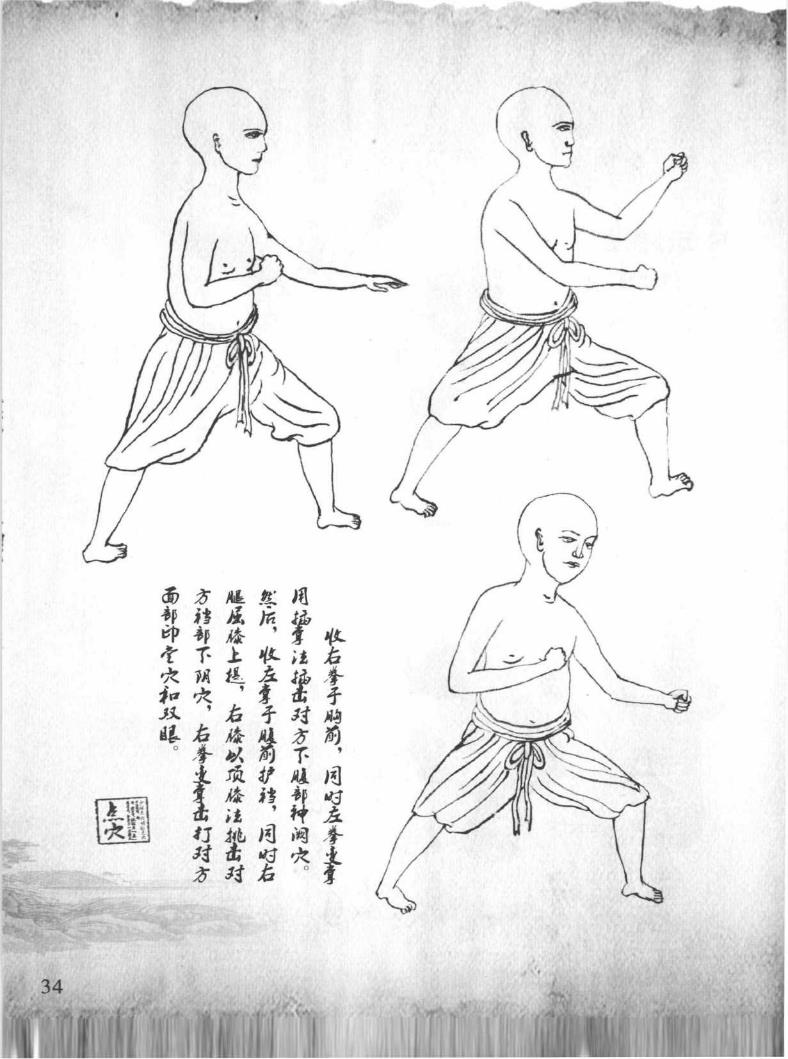 收右拳于胸前，同时左拳变掌
用插掌法插击对方下腹部神阙穴。
然后，收左掌于腹前护裆，同时右
腿屈膝上提，右膝以顶膝法挑击对
方裆部下阴穴，右拳变掌击打对方
面部印堂穴和双眼。
点穴
34